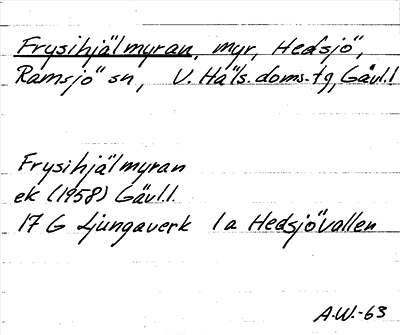 Frysihjälmyran, myr, Hedsjö,
Ramsjö sn, V. Häls. doms.tg, Gävl.l
Frysihjälmyran
ek (1958) Gävl.l.
17 G Ljungaverk 1a Hedsjövallen
A.W.-63